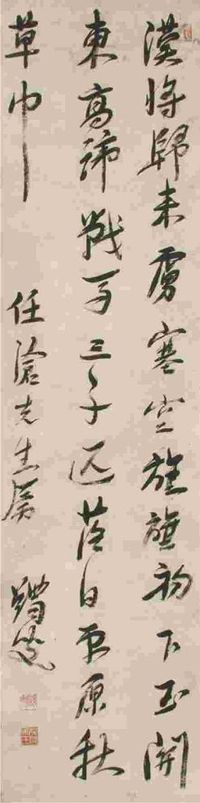 漢將歸来虜塞空旌旗初下玉關
東高蹄戰馬三千匹落日平原秋
草中
任滄先生屬 蠲叟